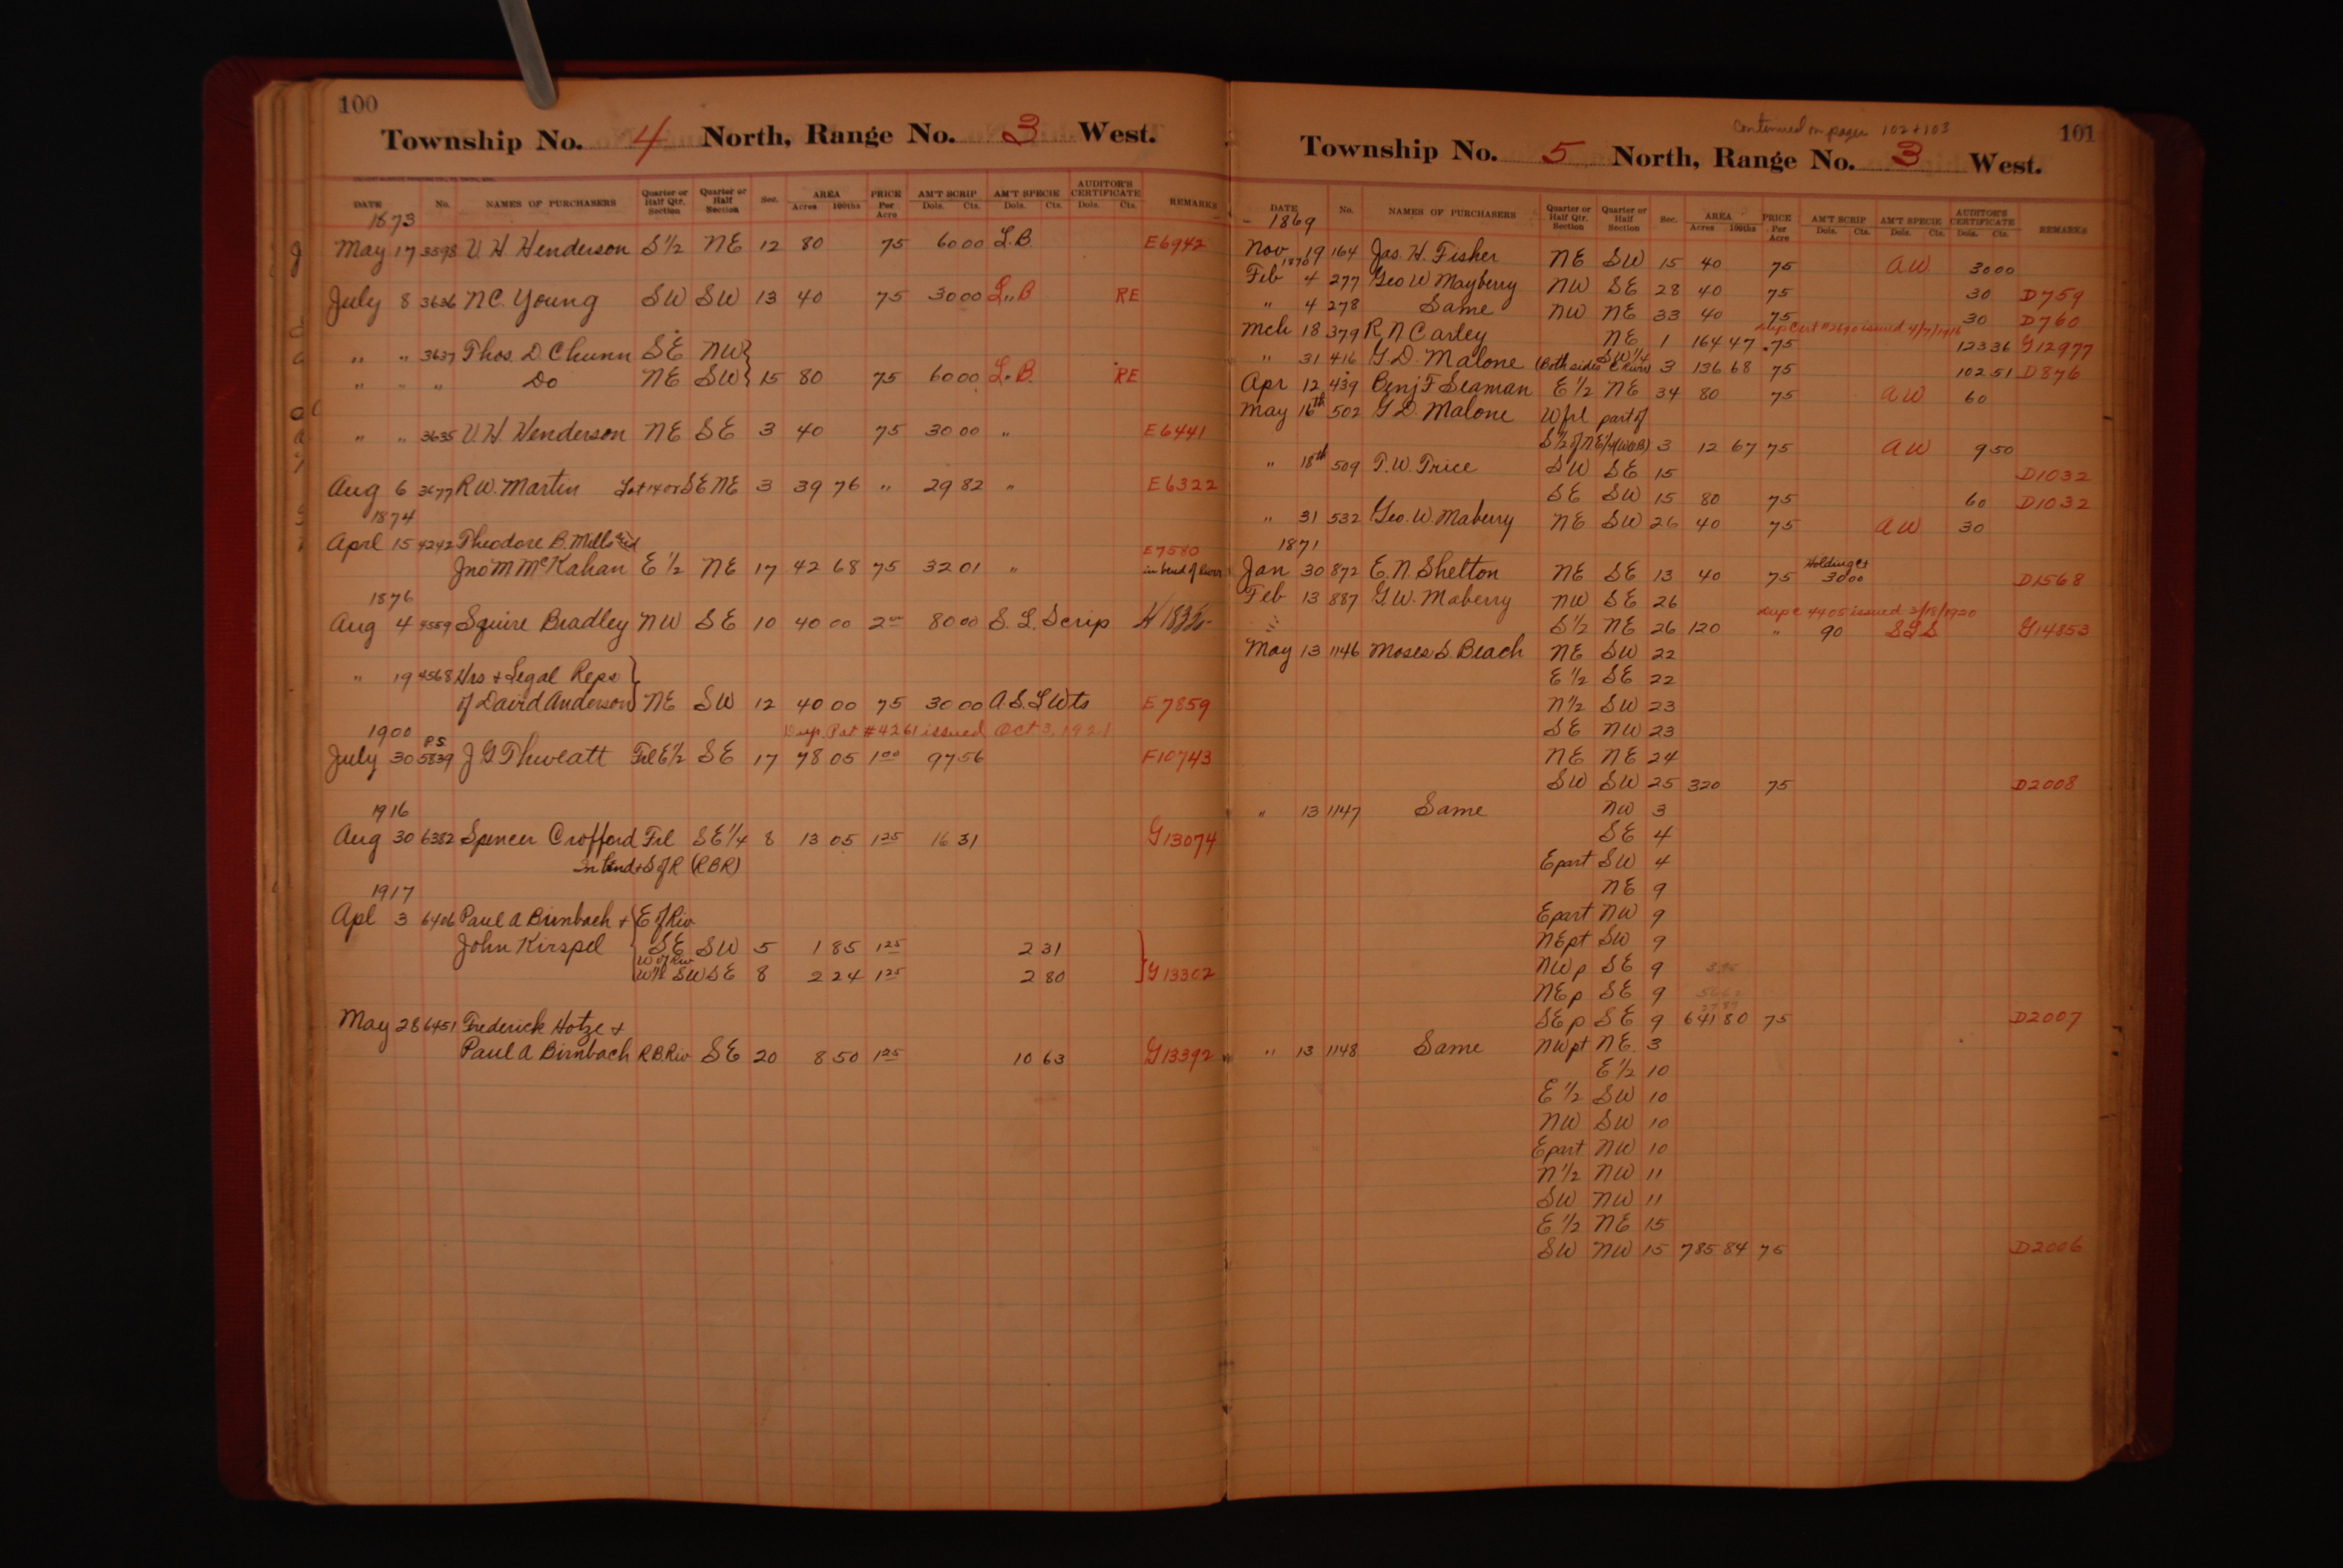 100
Township No. 4 North, Range No. 3 West.
DATE No. NAMES OF PURCHASERS Quarter or Half Qtr. Section Quarter or Half Section Sec. AREA Acres 100ths PRICE Per Acre AM'T SCRIP Dols. Cts. AM'T SPECIE Dols. Cts. AUDITOR'S CERTIFICATE Dols. Cts. REMARKS
1873
May 17 3598 V. H. Henderson S½ NE 12 80 75 6000 L.B. E6942
July 8 3636 N.C. Young SW SW 13 40 75 3000 L.,B RE
" " 3637 Thos. D. Chunn SE NW
" " " Do NE SW 15 80 75 6000 L.B. RE
" " 3635 V. H. Henderson NE SE 3 40 75 3000 " E6441
Aug 6 3677 R.W. Martin Lot 14 or SE NE 3 39 76 " 29 82 " E6322
1874
April 15 4242 Theodore B. Mills and E7580
Jno M McKahan E½ NE 17 42 68 75 3201 " in bend of River
1876
Aug 4 4559 Squire Bradley NW SE 10 40 00 2 00 8000 S. L. Scrip
" 19 4568 Hrs & Legal Reps
of David Anderson NE SW 12 40 00 75 3000 A.S.L Wts E7859
Dup. Pat #4261 issued Oct 3, 1921
1900
July 30 P.S. 5839 J G Thweatt Frl E½ SE 17 78 05 1 00 97 56 F10743
1916
Aug 30 6382 Spencer Crofford Frl SE¼ 8 13 05 1 25 16 31 G13074
In bend & S of R (RBR)
1917
Apl 3 6406 Paul A Birnbach & E of Riv
John Kirspel SE SW 5 1 85 1 25 2 31
W of Riv
W½ SW SE 8 2 24 1 25 2 80 G13302
May 28 6451 Frederick Hotze &
Paul A Birnbach R.B.Riv SE 20 8 50 1 25 10 63 G13392
Continued on pages 102 + 103
101
Township No. 5 North, Range No. 3 West.
DATE No. NAMES OF PURCHASERS Quarter or Half Qtr. Section Quarter or Half Section Sec. AREA Acres 100ths PRICE Per Acre AM'T SCRIP Dols. Cts. AM'T SPECIE Dols. Cts. AUDITOR'S CERTIFICATE Dols. Cts. REMARKS
1869
Nov 19 164 Jas. H. Fisher NE SW 15 40 75 AW 3000
1870
Feb 4 277 Geo W Mayberry NW SE 28 40 75 30 D759
" 4 278 Same NW NE 33 40 75 30 D760
Dup Cert #2690 issued 4/7/1916
Mch 18 379 R N Carley NE 1 164 47 .75 123 36 G12977
" 31 416 G. D. Malone (Both sides River) SW¼ 3 136 68 75 102 51 D876
Apr 12 439 Benj F Seaman E½ NE 34 80 75 AW 60
May 16th 502 G D. Malone W frl part of
S½ of NE¼ (WOB) 3 12 67 75 AW 9 50
" 18th 509 T. W. Trice SW SE 15 D1032
SE SW 15 80 75 60 D1032
" 31 532 Geo. W. Maberry NE SW 26 40 75 AW 30
1871
Jan 30 872 E. N. Shelton NE SE 13 40 75 Holding Ct 3000 D1568
Feb 13 887 G. W. Maberry NW SE 26
Dup c 4405 issued 3/18/1920
S½ NE 26 120 " 90 SLS G14853
May 13 1146 Moses S. Beach NE SW 22
E½ SE 22
N½ SW 23
SE NW 23
NE NE 24
SW SW 25 320 75 D2008
" 13 1147 Same NW 3
SE 4
E part SW 4
NE 9
E part NW 9
NE pt SW 9
NW p SE 9
NE p SE 9
SE p SE 9 641 80 75 D2007
" 13 1148 Same NW pt NE. 3
E½ 10
E½ SW 10
NW SW 10
E part NW 10
N½ NW 11
SW NW 11
E½ NE 15
SW NW 15 785 84 75 D2006